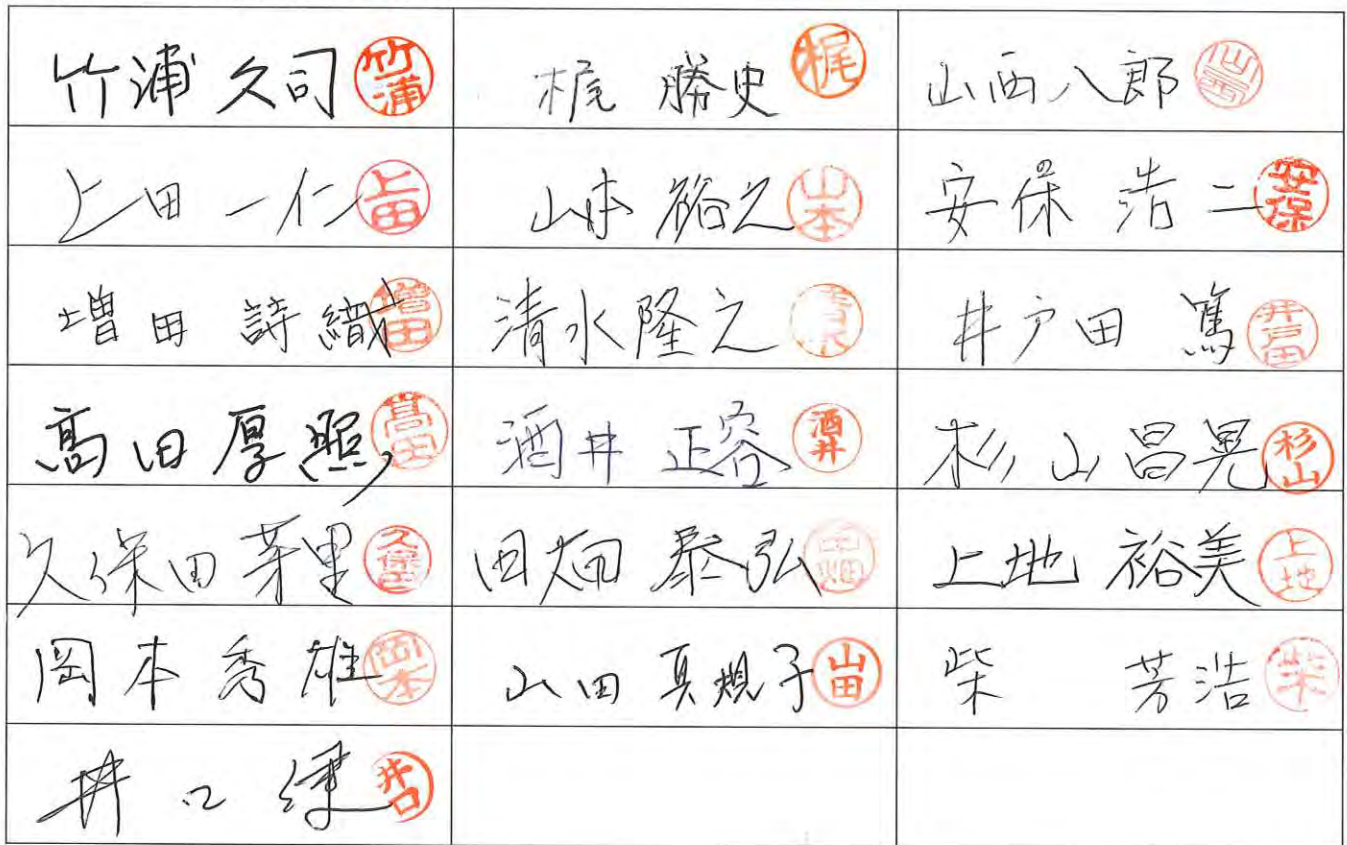 竹浦 久司 竹浦 梶 勝史 梶 山西八郎 山西
上田 一仁 上田 山本 裕之 山本 安保 浩二 安保
増田 詩織 増田 清水隆之 清水 井戸田 篤 井戸田
髙田 厚照 髙田 酒井 正容 酒井 杉山昌晃 杉山
久保田 芽里 久保田 田畑 泰弘 田畑 上地 裕美 上地
岡本秀雄 岡本 山田 真規子 山田 柴 芳浩 柴
井口 健 井口